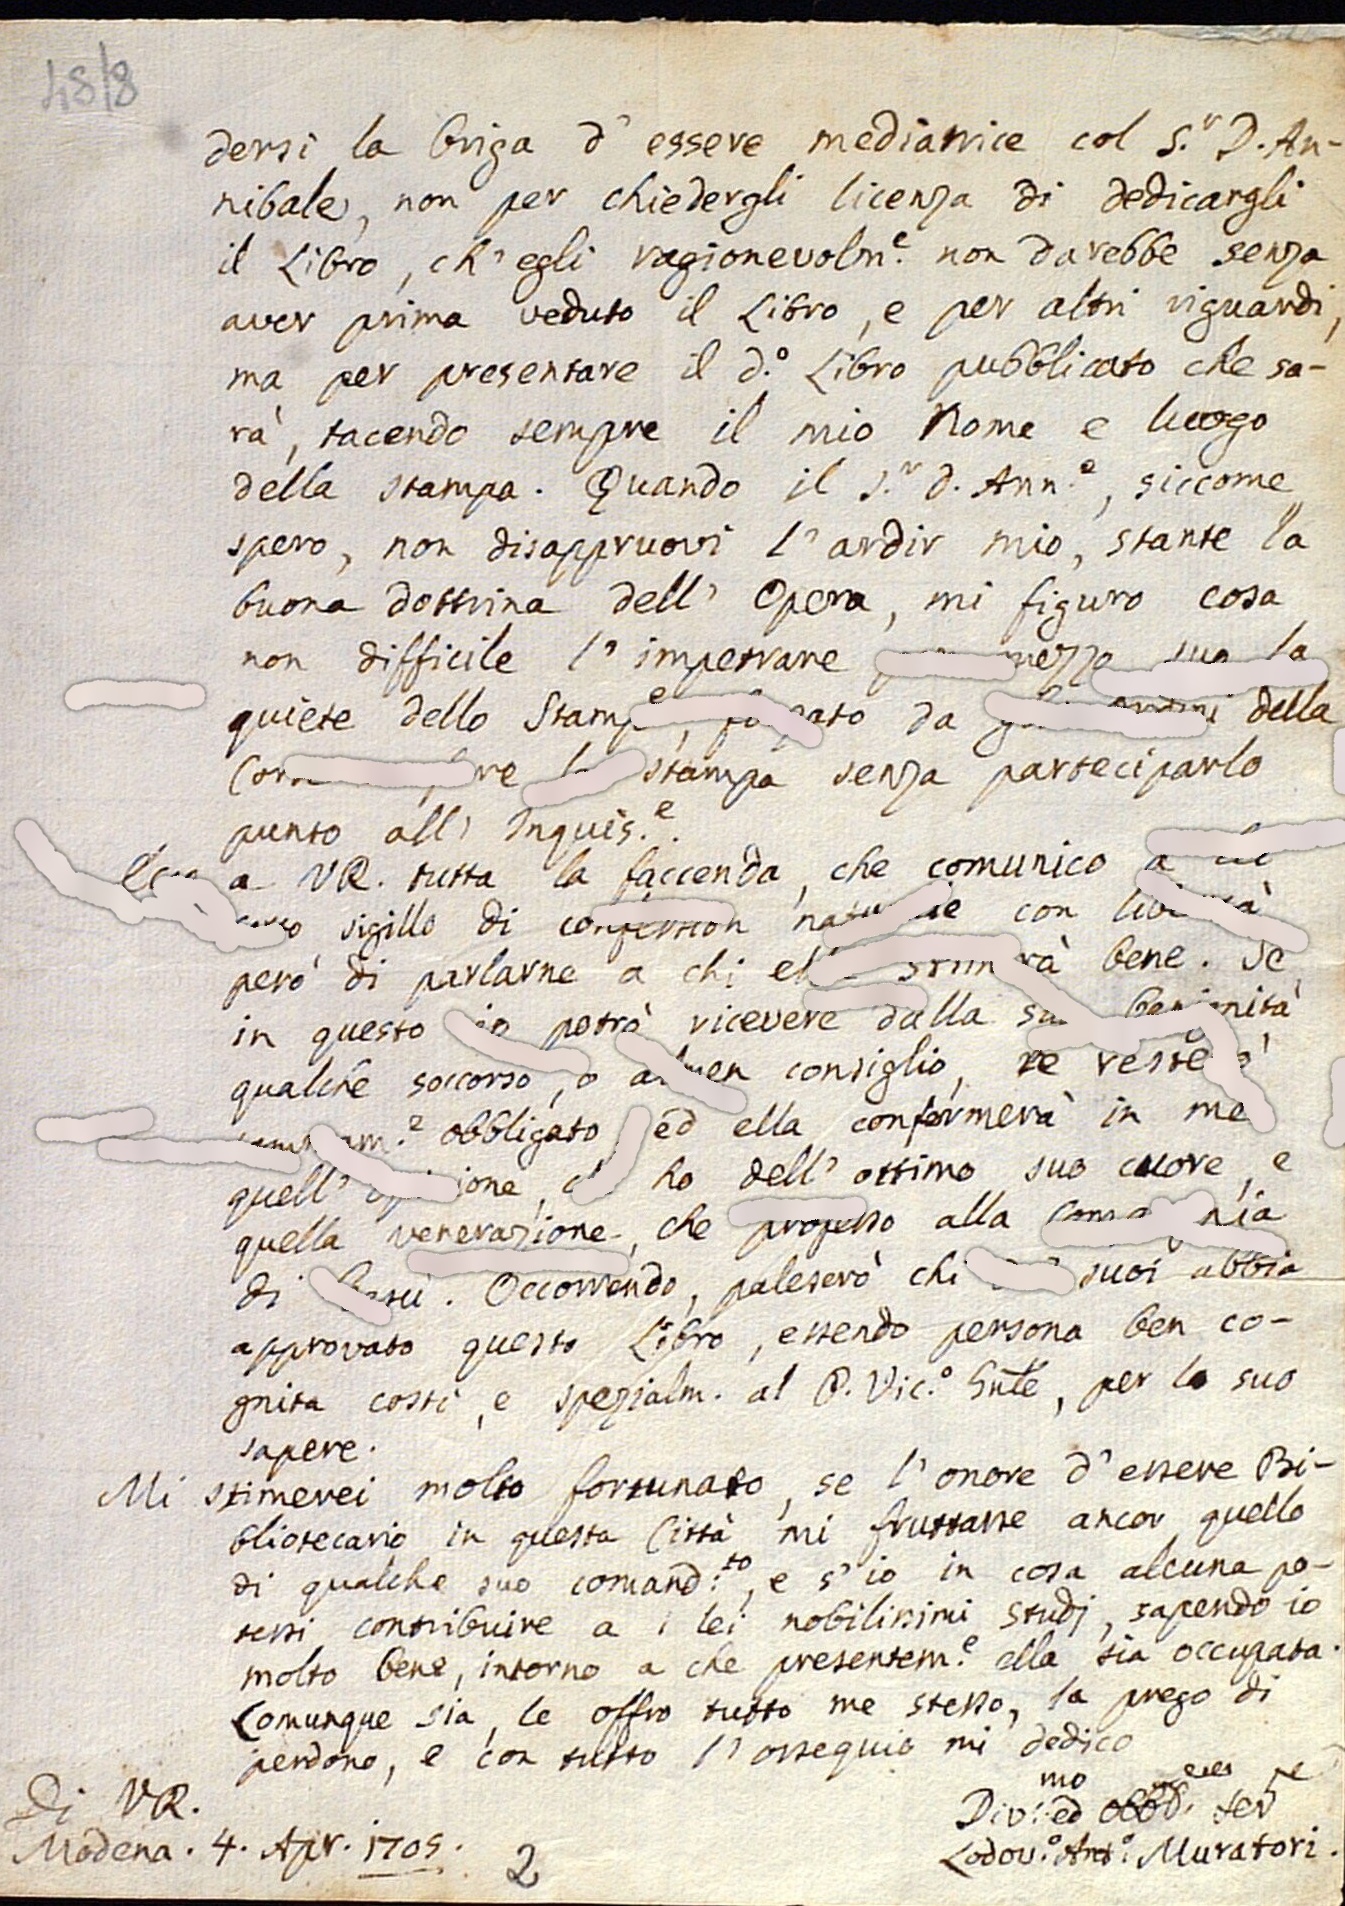 48/8
dersi la briga d' essere mediatrice col S.r D. An-
nibale, non per chiedergli licenza di dedicargli
il Libro, ch' egli ragionevolm.e non darebbe senza
aver prima veduto il Libro, e per altri riguardi,
ma per presentare il d.o Libro pubblicato che sa-
rà, tacendo sempre il mio Nome e luogo
della stampa. Quando il S.r D. Ann.e, siccome
spero, non disappruovi l' ardir mio, stante la
buona dottrina dell' Opera, mi figuro cosa
non difficile l' impetrare mezzo sua la
quiete dello Stamp.e, da della
stampa senza parteciparlo
punto all' Inquis.e.
a VR. tutta la faccenda, che comunico a
sigillo di confession con libertà
però di parlarne a chi bene. Se
in questo io potrò ricevere dalla benignità
qualche soccorso, o almen consiglio, ne
obbligato, ed ella confermerà in me
quell' ho dell' ottimo suo cuore, e
quella venerazione, che professo alla
di Gesù. Occorrendo, paleserò chi suoi abbia
approvato questo Libro, essendo persona ben co-
gnita costì, e spezialm. al P. Vic.o Gnle, per lo suo
sapere.
Mi stimerei molto fortunato, se l' onore d' essere Bi-
bliotecario in questa Città mi fruttasse ancor quello
di qualche suo comand.to, e s' io in cosa alcuna po-
tessi contribuire a i lei nobilissimi studj, sapendo io
molto bene, intorno a che presentem.e ella sia occupata.
Comunque sia, le offro tutto me stesso, la prego di
perdono, e con tutto l' ossequio mi dedico
Di VR.
Div.mo ed obb.
Modena. 4. Apr. 1705.
Lodov.o Ant.o Muratori.
2